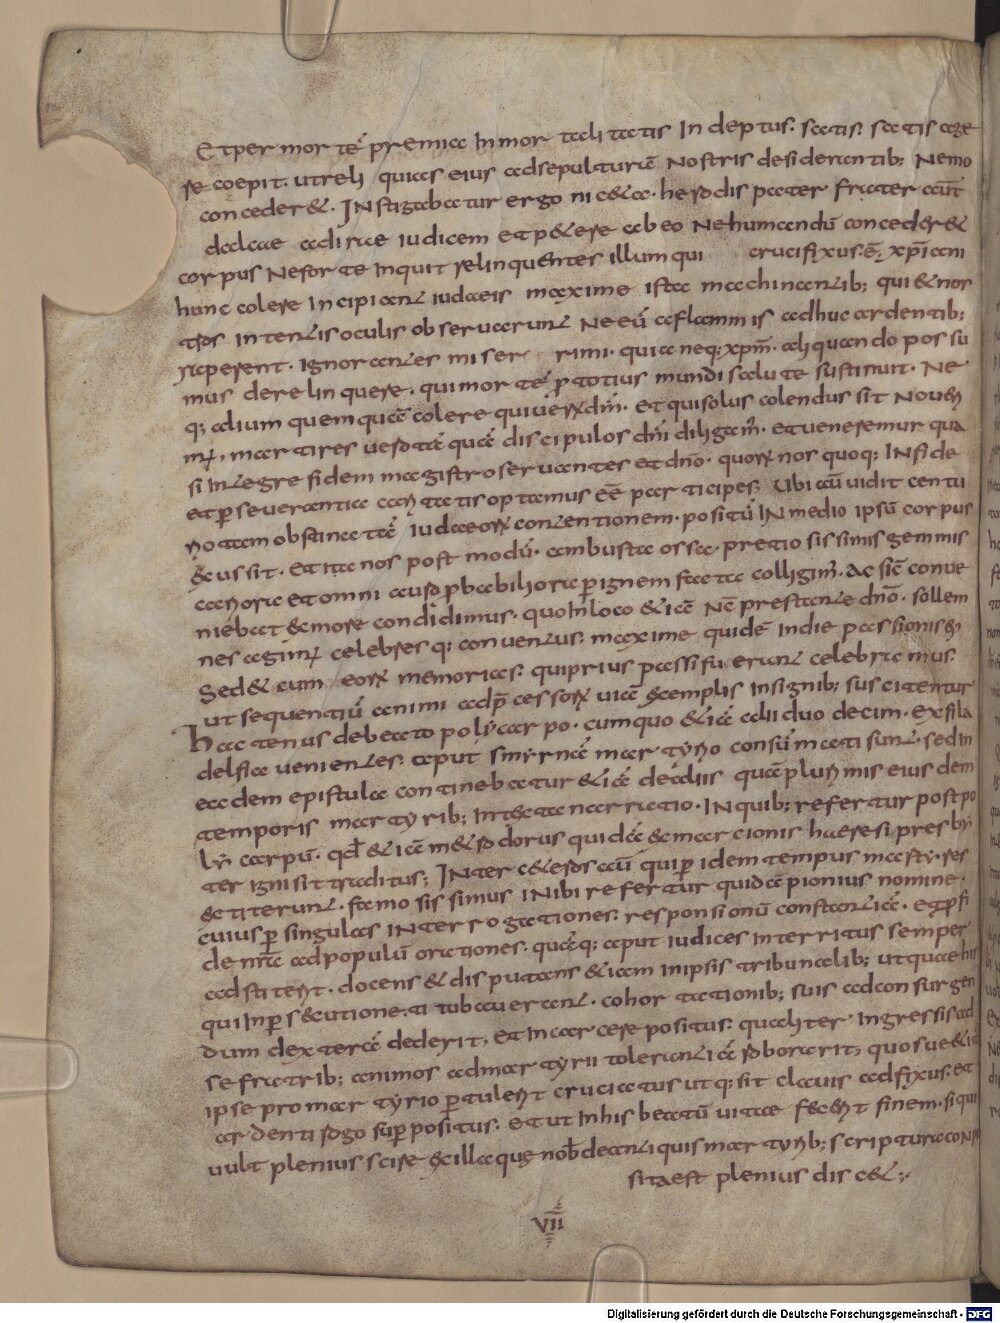 Et per mortē premia inmortalitatis indeptus. satis. satis age
re coepit. ut reli quias eius ad sepulturā nostris desiderantib; nemo
concederet. Instigabatur ergo niceta. herodis pater frater aut̄
dalcae adirae iudicem et petere ab eo ne humandū concederet
corpus Ne forte inquit relinquentes illum qui crucifixus.ē; xp̄iani
hunc colere incipiant iudaeis maxime ista machinantib; qui et nos
tros intentis oculis observarunt ne eū a flammis adhuc ardentib;
raperent. ignorantes miser rimi. quia neq; xp̄m. aliquando possu
mus derelinquere. qui mortē p totius mundi salute sustinuit. Ne
q; alium quemquā colere qui verū dm̄. et qui solus colendus sit noveri
m;, martires vero tā quā discipulos dn̄i diligam;. et veneremur qua
si integre fidem magistro servantes et dn̄o. quorū nos quoq; in fide
et p severantia caritatis optamus eē participes; Ubi aū vidit centu
rio tam obstinatā iudaeorū contentionem. positū in medio ipsū corpus
exussit. Et ita nos post modū. ambusta ossa. pretiosissimis gemmis
cariora et omni auro p babiliora p ignem facta colligim;. Ac sic conve
niebat ex more condidimus. quo in loco etiā nc̄ prestante dn̄o. sollem
nes agim; celebres q; conventus. maxime quidē in die passionis ei
Sed et cum eorū memorias. qui prius passi fuerunt celebramus.
ut sequentiū animi ad p̄cessorū viā exemplis insignib; suscitentur
Hactenus de beato polycarpo. cum quo etiā alii duodecim. ex fila
delfia venientes. aput smyrnā martyrio consūmati sunt. sed in
eadem epistula continebatur etiā de aliis quā plurimis eiusdem
temporis martyrib; intheata narratio. In quib; refertur post po
lycarpū. qd̄ etiā metrodorus quidā ex marcionis haeresi presby
ter igni sit traditus; Inter ceteros aū qui p idem tempus mastyres
extiterunt. famosissimus inibi refertur quidā pionius nomine.
cuius p singulas interrogationes. responsionū constantiā. et p fi
de nr̄a ad populū orationes. quāq; aput iudices interritus semper
adstitent. docens et disputans etiam in ipsis tribunalib; utquae his
qui in p secutione. titubaverant. cohortationib; suis ad consurgen
dum dexterā dederit, et in carcere positus. qualiter ingressis ad
se fratrib; animos ad martyrii tolerantiā roborarit, quos ve etiā
ipse pro martyrio p tulerit cruciatus utq; sit clavis adfixus. et
ardenti rogo sup positus. et ut in his beatū vitae fecerit finem. si qui
vult plenius scire ex illa que nob̄ de antiquis martyrib; scriptura con
sita est plenius discet;
VII
Digitalisierung gefördert durch die Deutsche Forschungsgemeinschaft - DFG